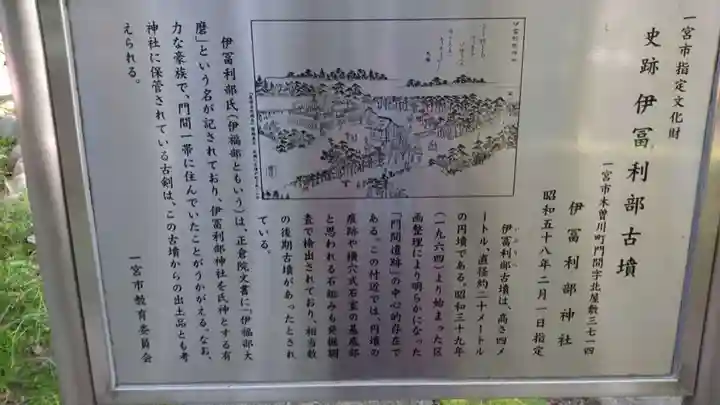 一宮市指定文化財
史跡 伊冨利部古墳
一宮市木曽川町門間字北屋敷三七一四
伊冨利部神社
昭和五十八年二月一日指定
伊冨利部古墳は、高さ四メ
ートル、直径約二十メートル
の円墳である。昭和三十九年
(一九六四)より始まった区
画整理により明らかになった
「門間遺跡」の中心的存在で
ある。この付近では、円墳の
痕跡や横穴式石室の基底部
と思われる石組みも発掘調
査で検出されており、相当数
の後期古墳があったとされ
ている。
伊冨利部氏(伊福部ともいう)は、正倉院文書に「伊福部大
麿」という名が記されており、伊冨利部神社を氏神とする有
力な豪族で、門間一帯に住んでいたことがうかがえる。なお、
神社に保管されている古剣は、この古墳からの出土品とも考
えられる。
一宮市教育委員会
伊冨利部神社